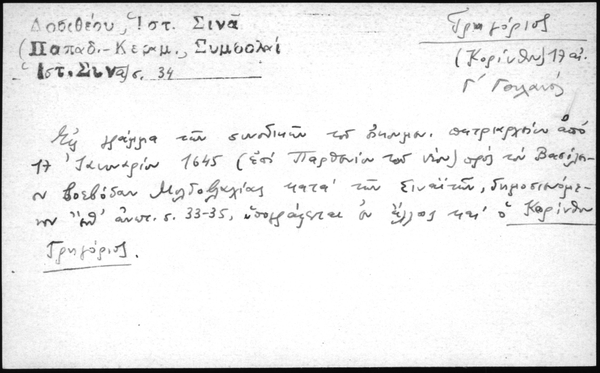 Δοσιθέου, Ἱστ. Σινᾶ
(Παπαδ.-Κεραμ., Συμβολαί
Ἱστ. Σινᾶ) σ. 34
Γρηγόριος
(Κορίνθου) 17 αἰ.
Γ΄
Εἰς γράμμα τῶν συνοδικῶν τοῦ Οἰκουμ. πατριαρχείου ἀπό
17 Ἰανουαρίου 1645 (ἐπί Παρθενίου τοῦ νέου) πρός τόν Βασίλει-
ον βοεβόδαν Μολδοβλαχίας κατά τῶν Σιναϊτῶν, δημοσιευόμε-
νον ἀνωτ. σ. 33-35, ὑπογράφεται ἐν τέλει καί ὁ Κορίνθου
Γρηγόριος.